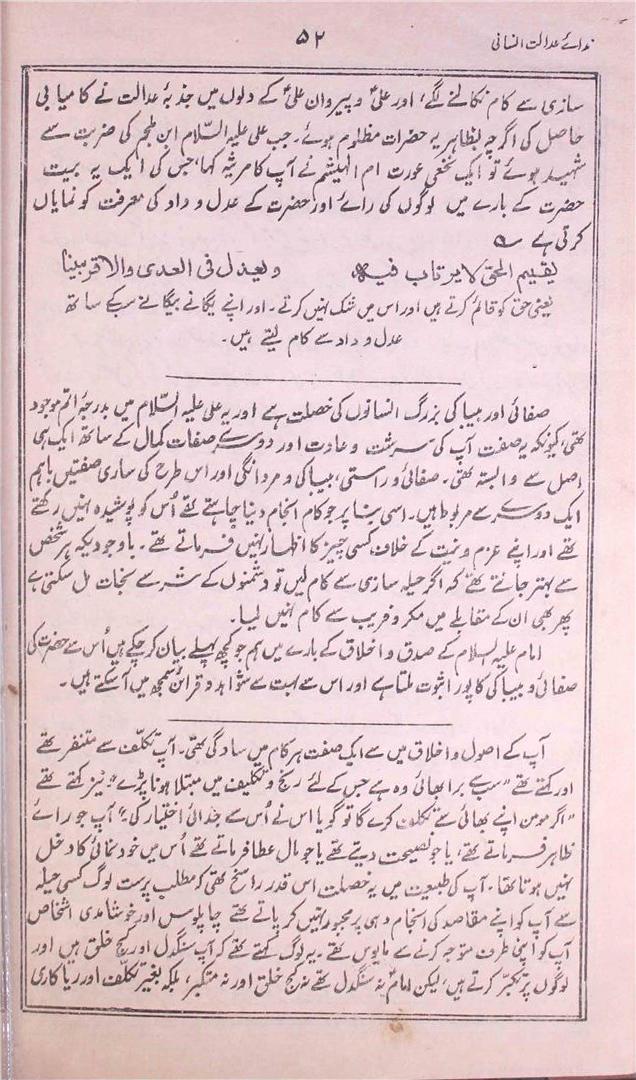 ندائے عدالت انسانی
۵۲
سازی سے کام نکالنے لگے، اور علیؑ و پیروان علیؑ کے دلوں میں جذبۂ عدالت نے کامیابی
حاصل کی اگرچہ بظاہر یہ حضرات مظلوم ہوئے۔ جب علی علیہ السّلام ابن ملجم کی ضربت سے
شہید ہوئے تو ایک نخعی عورت ام الہیثم نے آپ کا مرثیہ کہا، جس کی ایک یہ بیت
حضرت کے بارے میں لوگوں کی رائے اور حضرت کے عدل و داد کی معرفت کو نمایاں
کرتی ہے
یقیم الحق لا یرتاب فیہ و یعدل فی العدی والاقربینا
یعنی حق کو قائم کرتے ہیں اور اس میں شک نہیں کرتے۔ اور اپنے یگانے بیگانے سب کے ساتھ
عدل و داد سے کام لیتے ہیں۔
صفائی اور بیباکی بزرگ انسانوں کی خصلت ہے اور یہ علی علیہ السّلام میں بدرجۂ اتم موجود
تھی، کیونکہ یہ صفت آپ کی سرشت و عادت اور دوسرے صفات کمال کے ساتھ ایک ہی
اصل سے وابستہ تھی۔ صفائی و راستی، بیباکی و مردانگی اور اس طرح کی ساری صفتیں باہم
ایک دوسرے سے مربوط ہیں۔ اسی بنا پر جو کام انجام دینا چاہتے تھے اُس کو پوشیدہ نہیں رکھتے
تھے اور اپنے عزم و نیت کے خلاف کسی چیز کا اظہار نہیں فرماتے تھے۔ باوجودیکہ ہر شخص
سے بہتر جانتے تھے کہ اگر حیلہ سازی سے کام لیں تو دشمنوں کے شر سے نجات مل سکتی ہے
پھر بھی ان کے مقابلے میں مکر و فریب سے کام نہیں لیا۔
امام علیہ السلام کے صدق و اخلاق کے بارے میں ہم جو کچھ پہلے بیان کر چکے ہیں اُس سے حضرت کی
صفائی و بیباکی کا پورا ثبوت ملتا ہے اور اس سے بہت سے شواہد و قرائن سمجھ میں آسکتے ہیں۔
آپ کے اصول و اخلاق میں سے ایک صفت ہر کام میں سادگی تھی۔ آپ تکلّف سے متنفر تھے
اور کہتے تھے "سب سے برا بھائی وہ ہے جس کے لئے رنج و تکلیف میں مبتلا ہونا پڑے"۔ نیز کہتے تھے
"اگر مومن اپنے بھائی سے تکلف کرے گا تو گویا اس نے اُس سے جدائی اختیار کی"۔ آپ جو رائے
ظاہر فرماتے تھے، یا جو نصیحت دیتے تھے یا جو مال عطا فرماتے تھے اُس میں خود نمائی کا دخل
نہیں ہوتا تھا۔ آپ کی طبیعت میں یہ خصلت اس قدر راسخ تھی کہ مطلب پرست لوگ کسی حیلہ
سے آپ کو اپنے مقاصد کی انجام دہی پر مجبور نہیں کر پاتے تھے چاپلوس اور خوشامدی اشخاص
آپ کو اپنی طرف متوجہ کرنے سے مایوس تھے۔ یہ لوگ کہتے تھے کہ آپ سنگدل اور کج خلق ہیں اور
لوگوں پر تکبّر کرتے ہیں، لیکن امامؑ نہ سنگدل تھے نہ کج خلق اور نہ متکبر، بلکہ بغیر تکلف اور ریاکاری